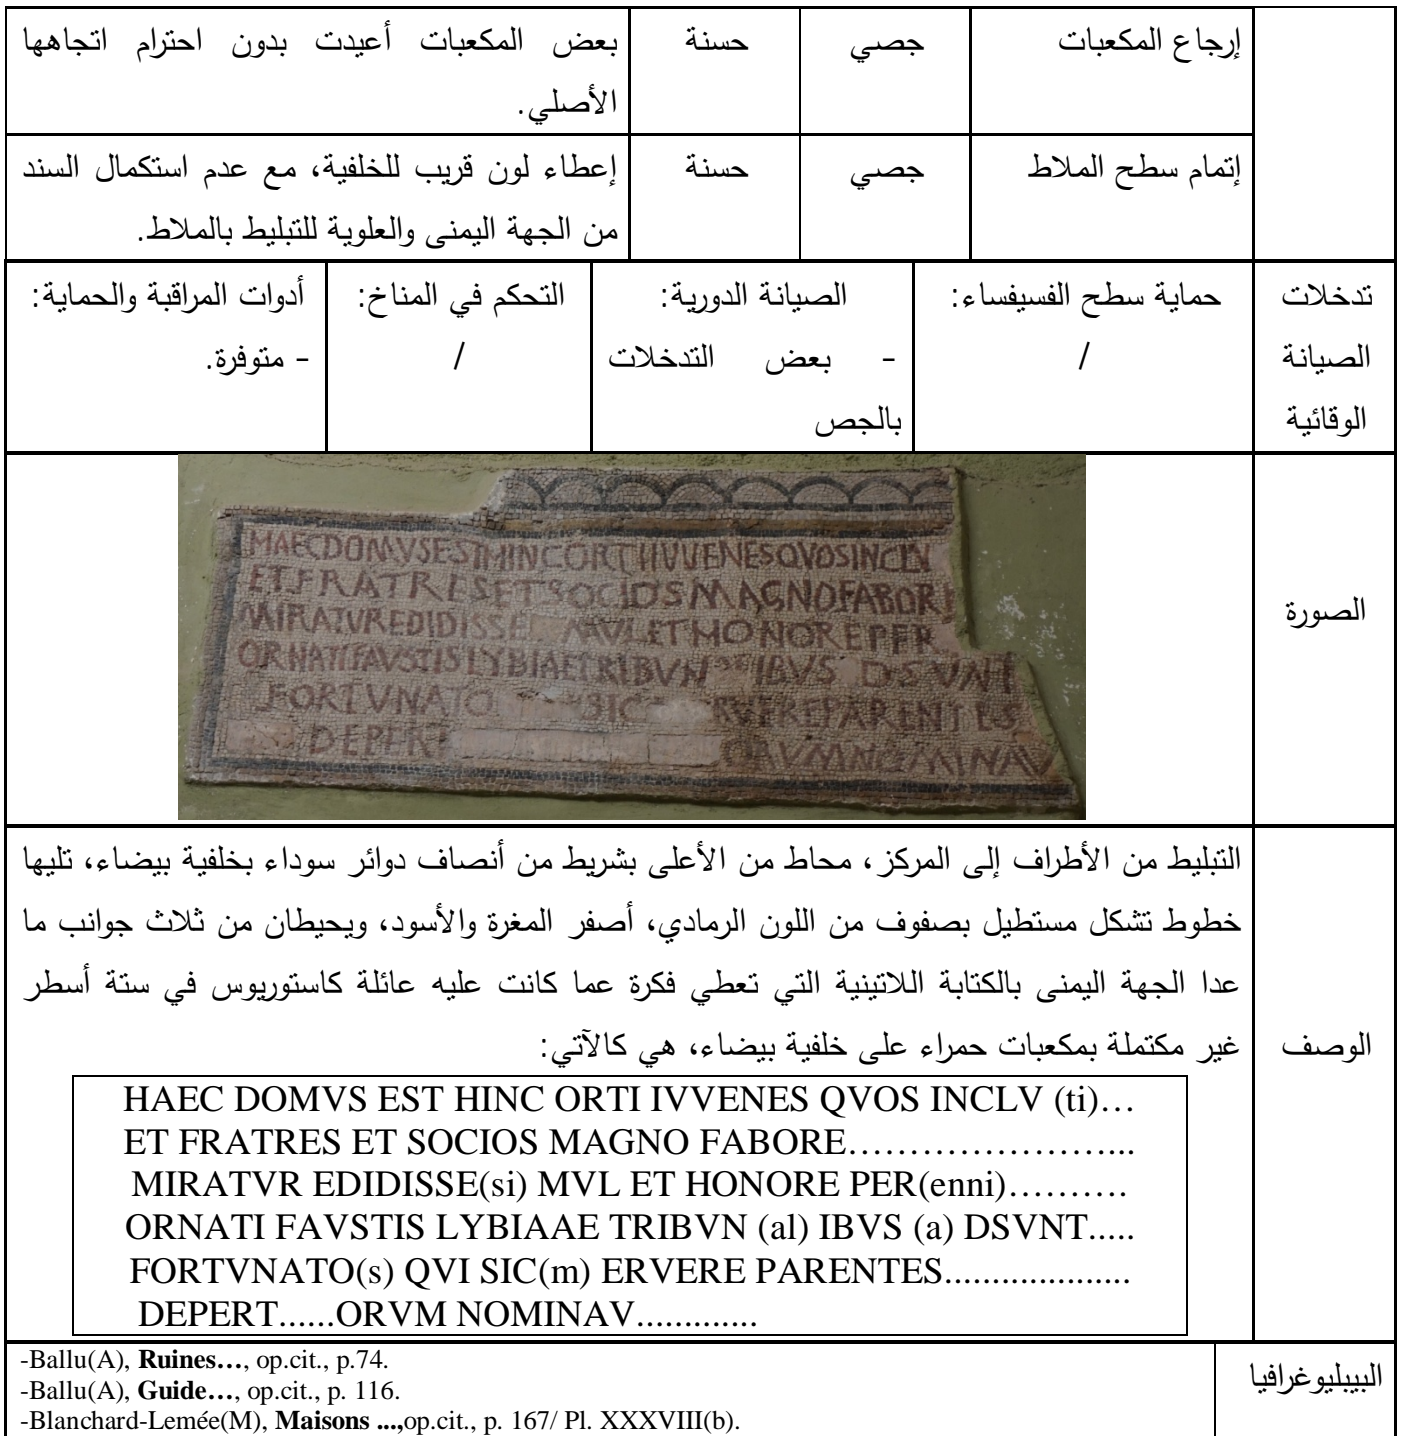 إرجاع المكعبات
جصي
حسنة
بعض المكعبات أعيدت بدون احترام اتجاهها
الأصلي.
إتمام سطح الملاط
جصي
حسنة
إعطاء لون قريب للخلفية، مع عدم استكمال السند
من الجهة اليمنى والعلوية للتبليط بالملاط.
تدخلات
الصيانة
الوقائية
حماية سطح الفسيفساء:
/
الصيانة الدورية:
- بعض التدخلات
بالجص
التحكم في المناخ:
/
أدوات المراقبة والحماية:
- متوفرة.
الصورة
MAECDOMVSESTMINCORTIIVVENESQVOSINCLV
ETFRATRESETSOCIOSMAGNOFABORE
MIRATVREDIDISSE MVLETMONOREPER
ORNATIFAVSTISLYBIAETRIBVN IBVS DSVNT
FORTVNATO SIC RVEREPARENTES
DEPERT ORVMNOMINAV
الوصف
التبليط من الأطراف إلى المركز، محاط من الأعلى بشريط من أنصاف دوائر سوداء بخلفية بيضاء، تليها
خطوط تشكل مستطيل بصفوف من اللون الرمادي، أصفر المغرة والأسود، ويحيطان من ثلاث جوانب ما
عدا الجهة اليمنى بالكتابة اللاتينية التي تعطي فكرة عما كانت عليه عائلة كاستوريوس في ستة أسطر
غير مكتملة بمكعبات حمراء على خلفية بيضاء، هي كالآتي:
HAEC DOMVS EST HINC ORTI IVVENES QVOS INCLV (ti)…
ET FRATRES ET SOCIOS MAGNO FABORE……………………...
MIRATVR EDIDISSE(si) MVL ET HONORE PER(enni)……….
ORNATI FAVSTIS LYBIAAE TRIBVN (al) IBVS (a) DSVNT.....
FORTVNATO(s) QVI SIC(m) ERVERE PARENTES....................
DEPERT......ORVM NOMINAV.............
البيبليوغرافيا
-Ballu(A), Ruines…, op.cit., p.74.
-Ballu(A), Guide…, op.cit., p. 116.
-Blanchard-Lemée(M), Maisons ...,op.cit., p. 167/ Pl. XXXVIII(b).